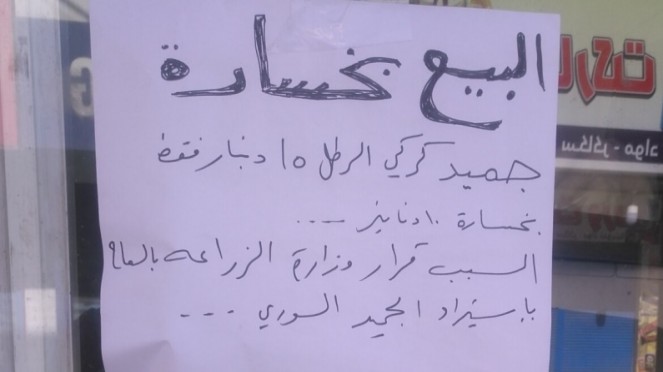 البيع بخسارة
جميد كركي الرطل ١٥ دينار فقط
بخسارة ١٠ دنانير ....
السبب قرار وزارة الزراعه بالسماح
بإستيراد الجميد السوري ...
سكاكر - مواد